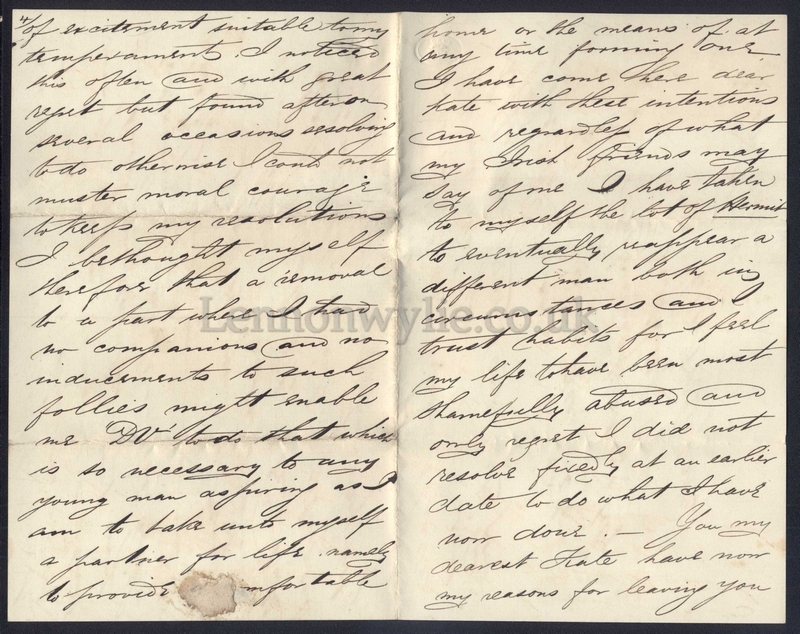 4/
of excitement suitable to my
temperament. I noticed
this often and with great
regret but found after on
several occasions resolving
to do otherwise I could not
muster moral courage
to keep my resolutions
I bethought myself
therefore that a removal
to a part where I had
no companions and no
inducements to such
follies might enable
me "DV" to do that which
is so necessary to any
young man aspiring as I
am to take unto myself
a partner for life. namely
to provide mfortable
home or the means of at
any time forming one.
I have come here dear
Kate with these intentions
and regardless of what
my Irish friends may
say of me I have taken
to myself the lot of Hermit
to eventually reappear a
different man both in
circumstances and I
trust habits for I feel
my life to have been most
shamefully abused and
only regret I did not
resolve fixedly at an earlier
date to do what I have
now done. — You my
dearest Kate have now
my reasons for leaving you
Lennonwylie.co.uk